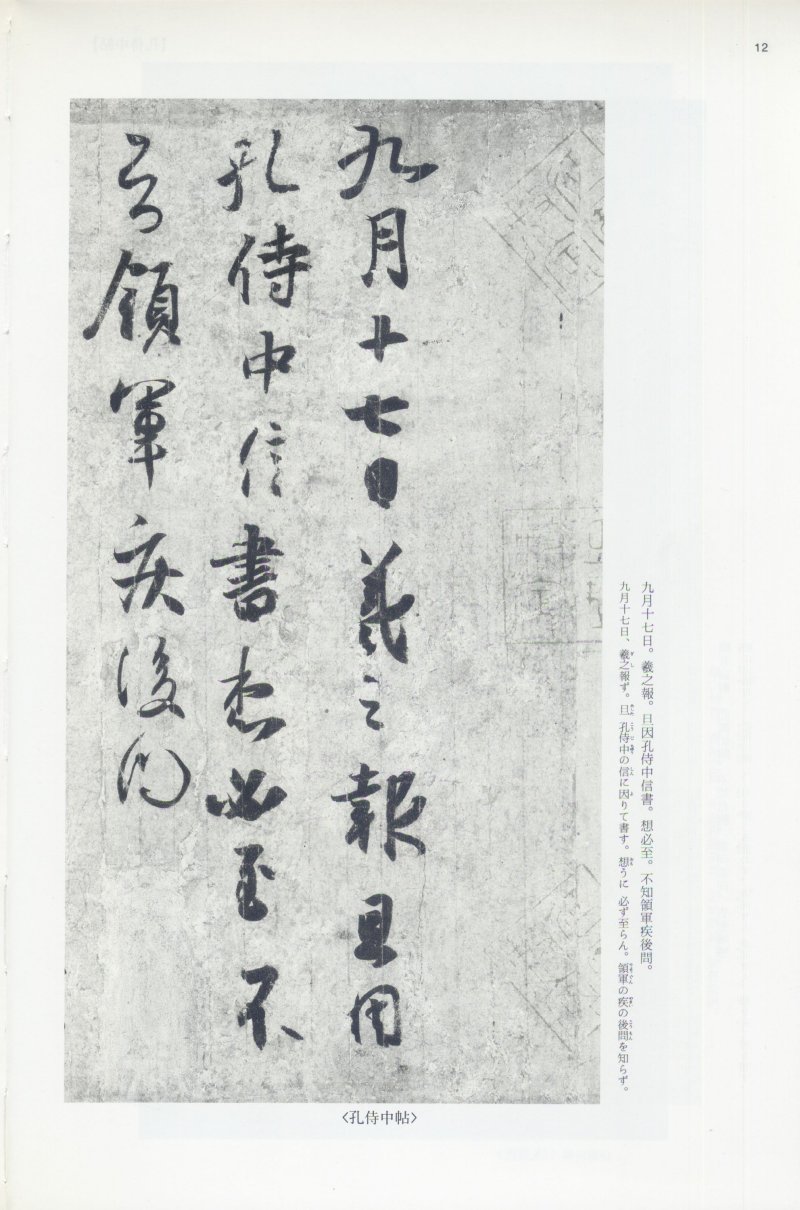 12
九月十七日羲之報且因
孔侍中信書想必至不
知領軍疾後問
九月十七日。羲之報。旦因孔侍中信書。想必至。不知領軍疾後問。
九月十七日、羲之報ず。旦 孔侍中の信に因りて書す。想うに 必ず至らん。領軍の疾の後問を知らず。
〈孔侍中帖〉